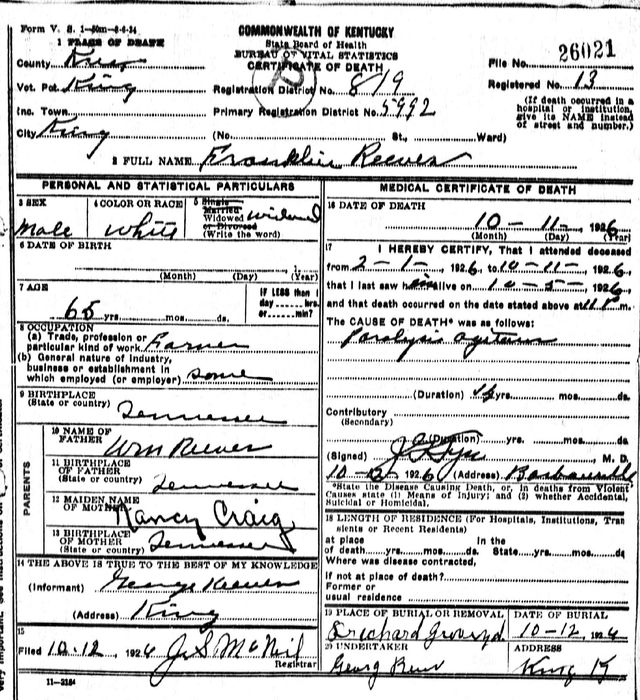 Form V. S. 1-50m-8-6-24
1 PLACE OF DEATH
COMMONWEALTH OF KENTUCKY
State Board of Health
BUREAU OF VITAL STATISTICS
CERTIFICATE OF DEATH
File No. 26021
County Knox
Vot. Pct. King
Registration District No. 819
Registered No. 13
Inc. Town
Primary Registration District No. 5992
(If death occurred in a
hospital or institution,
give its NAME instead
of street and number.)
City King (No. St., Ward)
2 FULL NAME Franklin Reeves
PERSONAL AND STATISTICAL PARTICULARS
3 SEX
Male
4 COLOR OR RACE
White
5 Single
Married
Widowed widowed
or Divorced
(Write the word)
6 DATE OF BIRTH
(Month) (Day) (Year)
7 AGE
65 yrs. mos. ds.
IF LESS than 1
day hrs.
or min?
8 OCCUPATION
(a) Trade, profession or
particular kind of work Farmer
(b) General nature of industry,
business or establishment in
which employed (or employer) same
9 BIRTHPLACE
(State or country) Tennessee
PARENTS
10 NAME OF
FATHER Wm Reeves
11 BIRTHPLACE
OF FATHER
(State or country) Tennessee
12 MAIDEN NAME
OF MOTHER Nancy Craig
13 BIRTHPLACE
OF MOTHER
(State or country) Tennessee
14 THE ABOVE IS TRUE TO THE BEST OF MY KNOWLEDGE
(Informant) George Reeves
(Address) King
15
Filed 10-12, 1926 J. S. McNeil
Registrar
11-3184
MEDICAL CERTIFICATE OF DEATH
16 DATE OF DEATH
10-11-, 1926
(Month) (Day) (Year)
17 I HEREBY CERTIFY, That I attended deceased
from 2-1-, 1926, to 10-11-, 1926,
that I last saw him alive on 10-5-, 1926,
and that death occurred on the date stated above at 11 P m.
The CAUSE OF DEATH* was as follows:
Paralysis agitans
(Duration) yrs. mos. ds.
Contributory
(Secondary)
(Duration) yrs. mos. ds.
(Signed) M. D.
10-12, 1926 (Address) Barbourville
*State the Disease Causing Death, or, in deaths from Violent
Causes state (1) Means of Injury; and (2) whether Accidental,
Suicidal or Homicidal.
18 LENGTH OF RESIDENCE (For Hospitals, Institutions, Tran
sients or Recent Residents)
at place In the
of death yrs. mos. ds. State yrs. mos. ds
Where was disease contracted,
If not at place of death?
Former or
usual residence
19 PLACE OF BURIAL OR REMOVAL
DATE OF BURIAL
10-12, 1926
20 UNDERTAKER
ADDRESS
King Ky